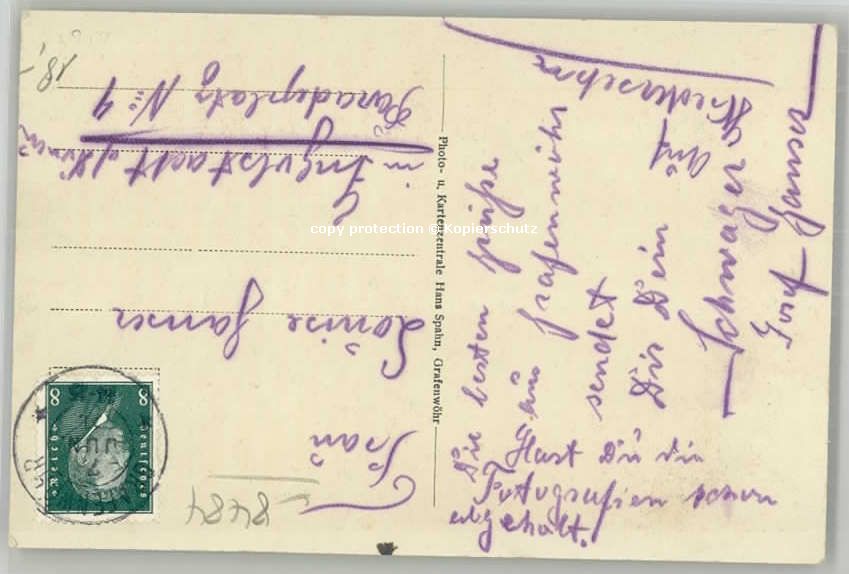 Die besten Grüße
aus Grafenwöhr
sendet
Dir Dein
Schwager
Josef Ganser
Auf
Wiedersehn
Hast Du die
Fotografien schon
abgeholt.
Frau
Louise Ganser
in Ingolstadt a/
Paradeplatz No 4
Photo- u. Kartenzentrale Hans Spahn, Grafenwöhr
8
8
Deutsches
Reich
8484
18,-
copy protection © Kopierschutz